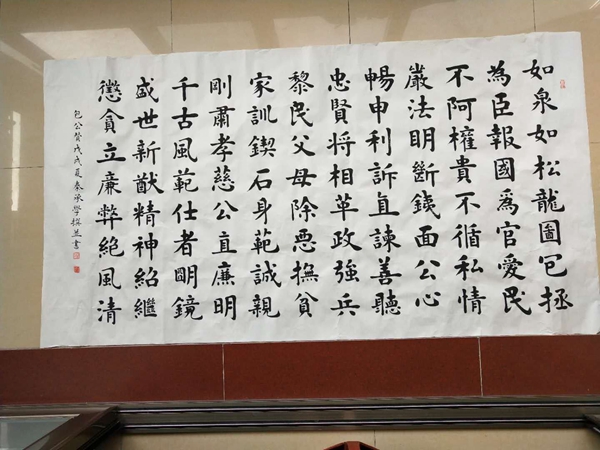 如泉如松龍圖包拯
為臣報國為官愛民
不阿權貴不循私情
嚴法明斷銕面公心
暢申利訴直諫善聽
忠賢将相革政強兵
黎民父母除惡撫貧
家訓鍥石身範誠親
剛肅孝慈公直廉明
千古風範仕者明鏡
盛世新猷精神紹繼
懲貪立廉弊絕風清
包公贊戊戌夏秦承學撰並書